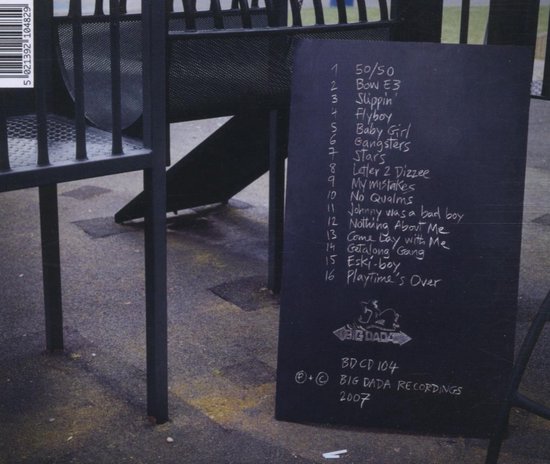 5021392104829
1 50/50
2 Bow E3
3 Slippin'
4 Flyboy
5 Baby Girl
6 Gangsters
7 Stars
8 Letter 2 Dizzee
9 My mistakes
10 No Qualms
11 Johnny was a bad boy
12 Nothing About Me
13 Come Lay with Me
14 Getalong Gang
15 Eski-boy
16 Playtime's Over
BIG DADA
BDCD104
Ⓟ + © BIG DADA RECORDINGS
2007